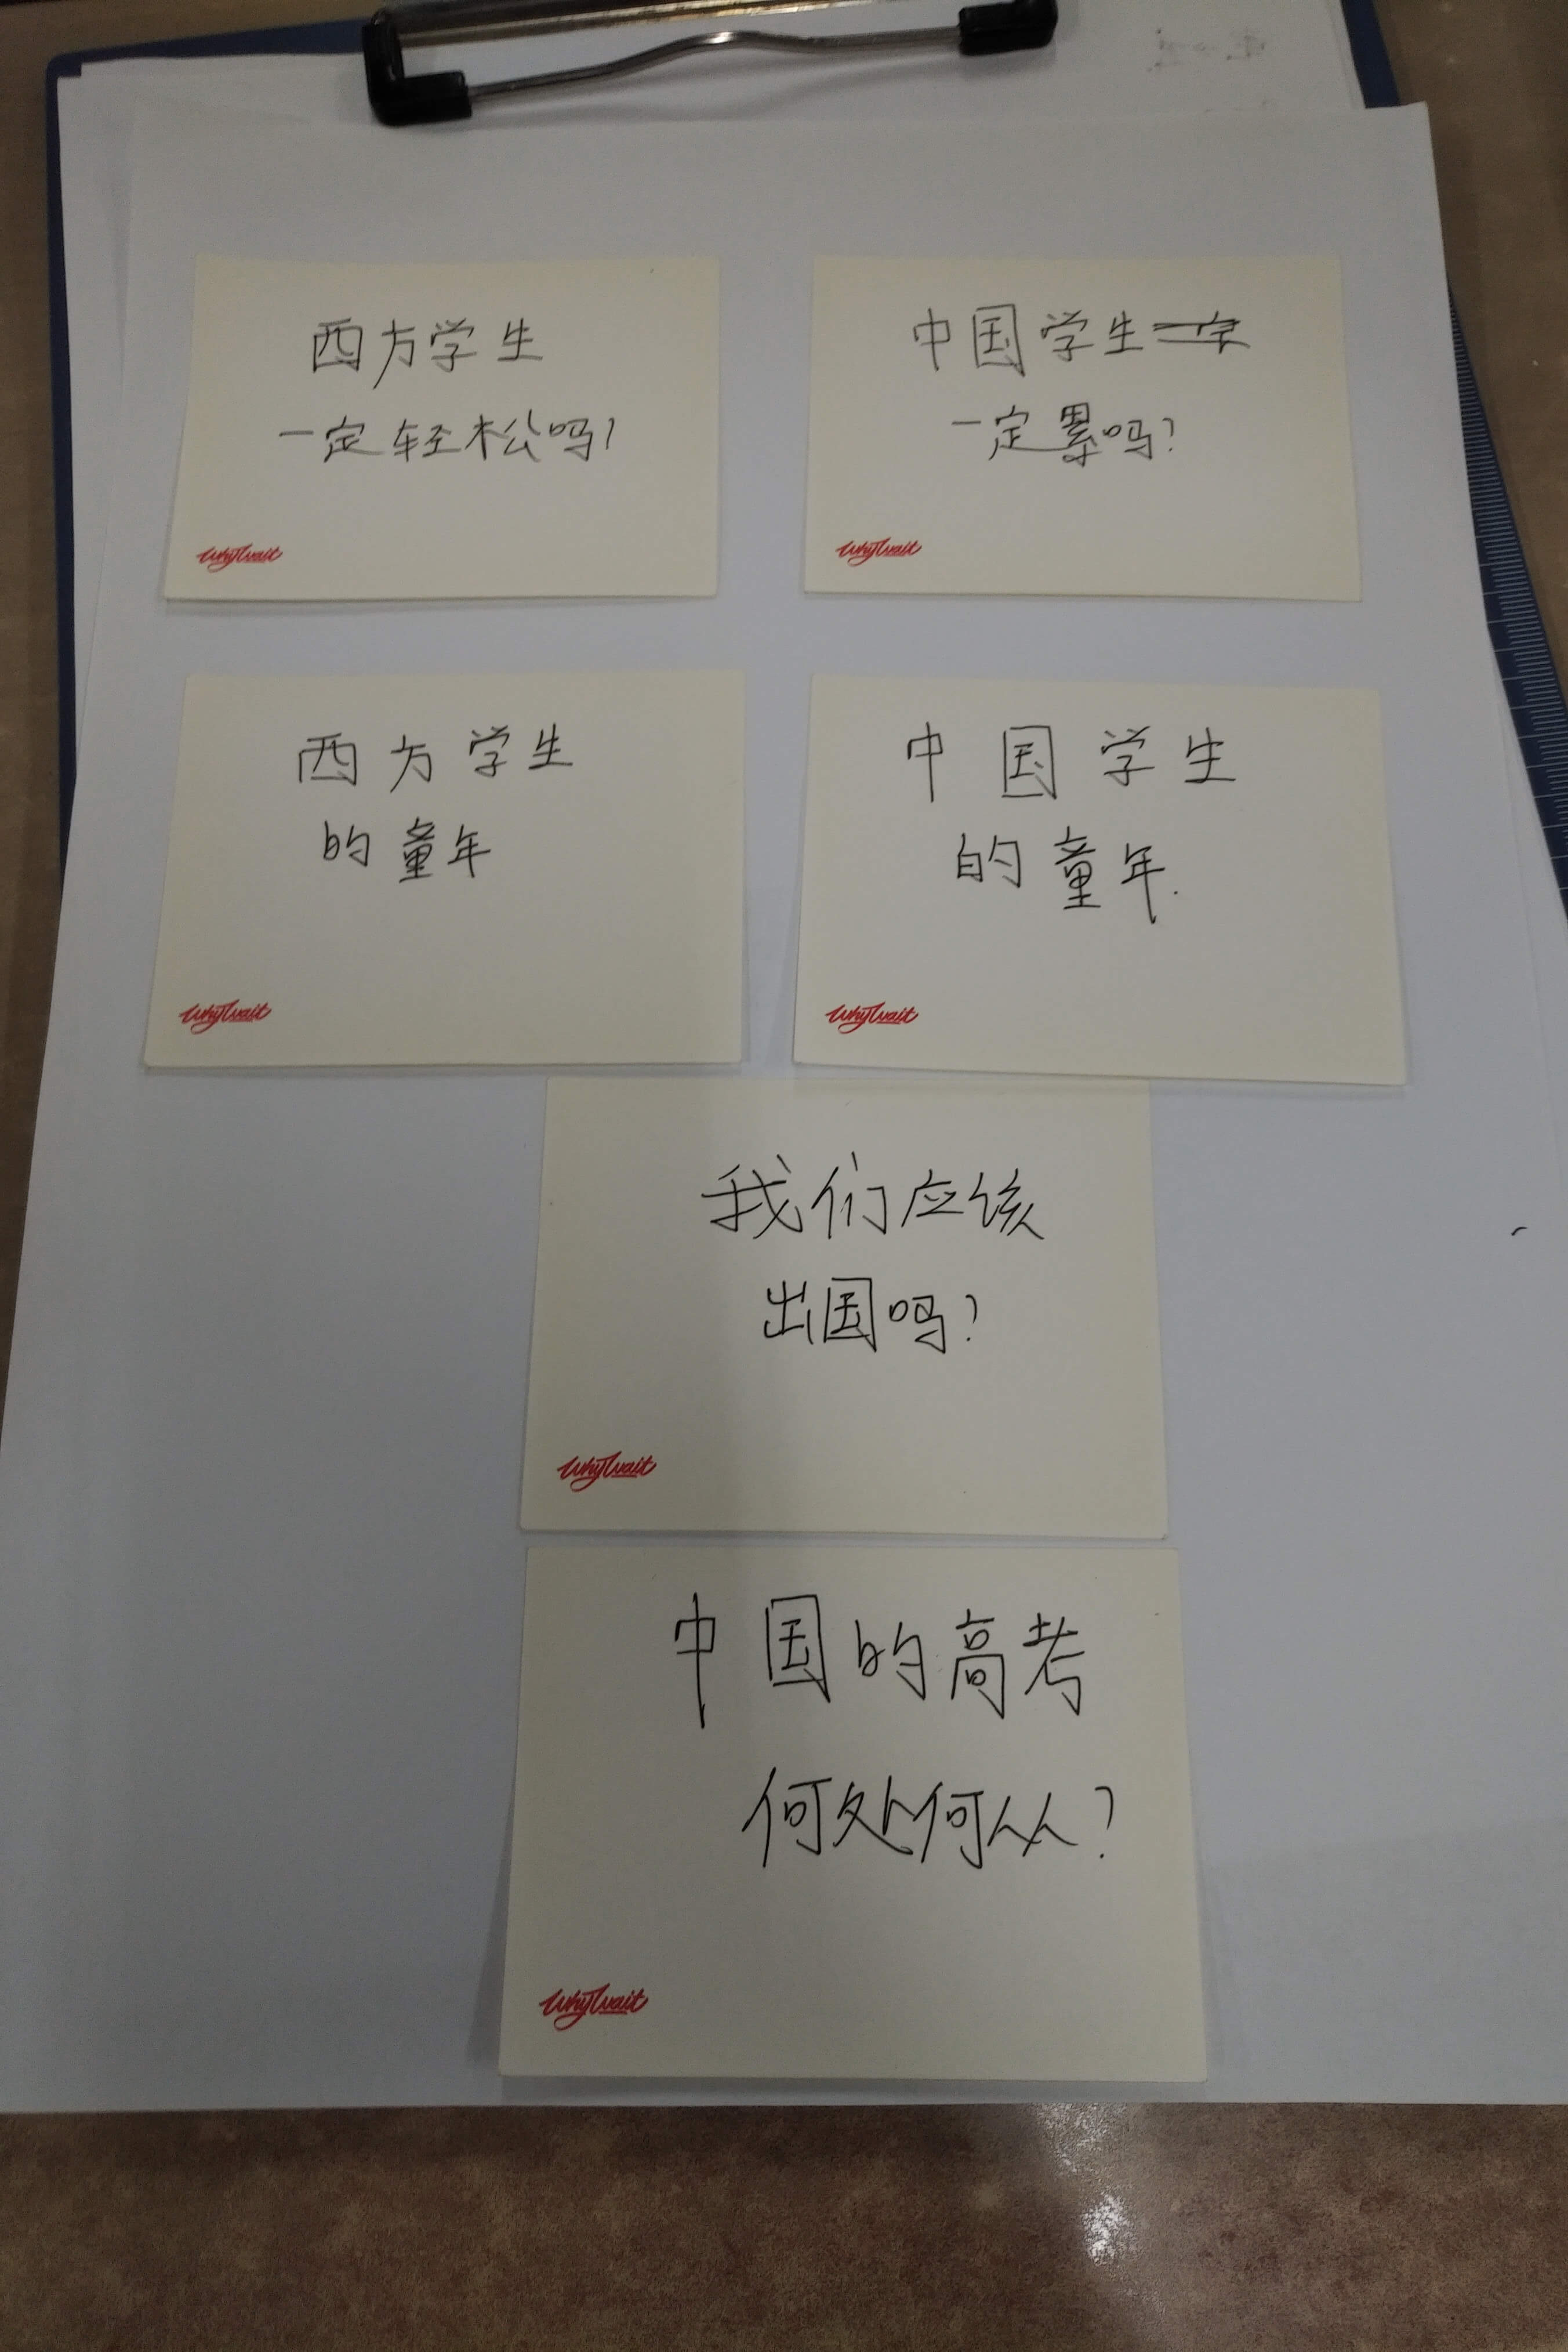 西方学生
一定轻松吗?
WhyWait
中国学生一定
一定累吗?
WhyWait
西方学生
的童年
WhyWait
中国学生
的童年.
WhyWait
我们应该
出国吗?
WhyWait
中国的高考
何处何从?
WhyWait